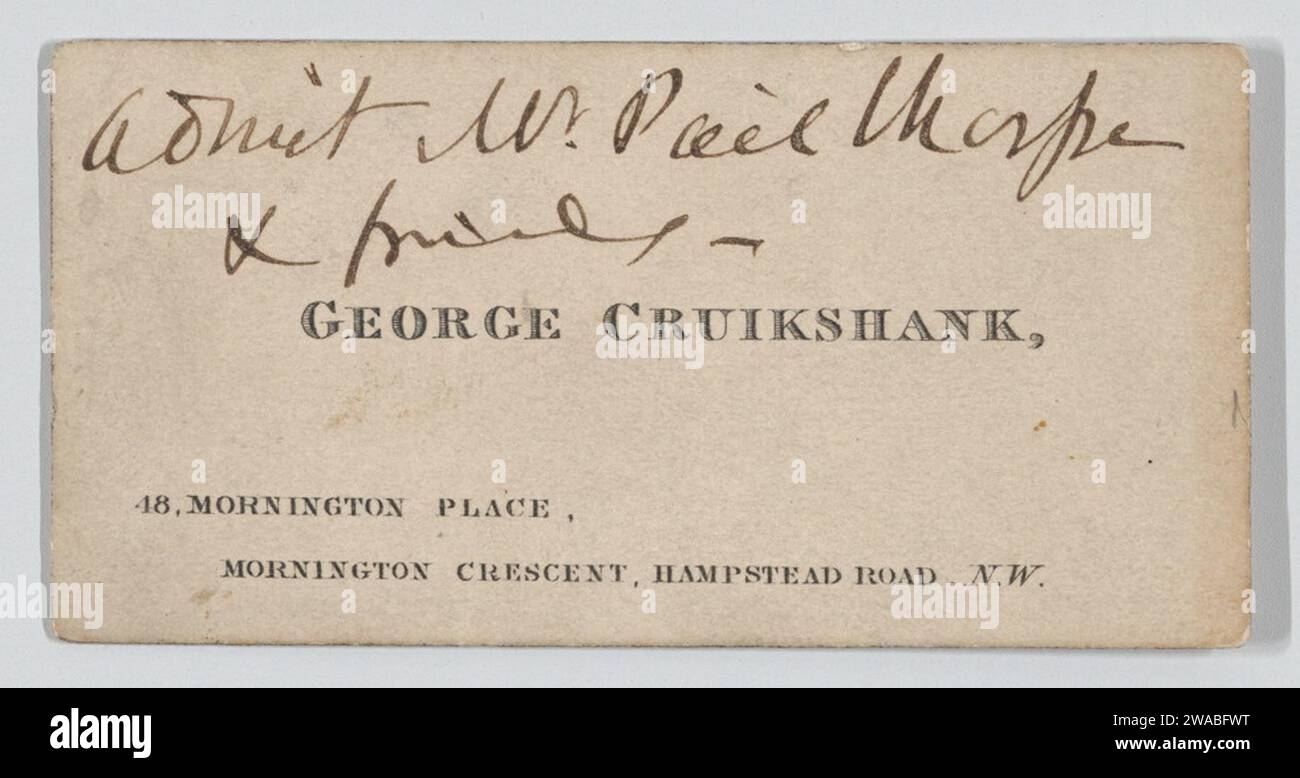 Admit Mr. Pailthorpe
& friends –
GEORGE CRUIKSHANK,
48, MORNINGTON PLACE,
MORNINGTON CRESCENT, HAMPSTEAD ROAD. N.W.
alamy
Image ID: 2WABFWT
www.alamy.com